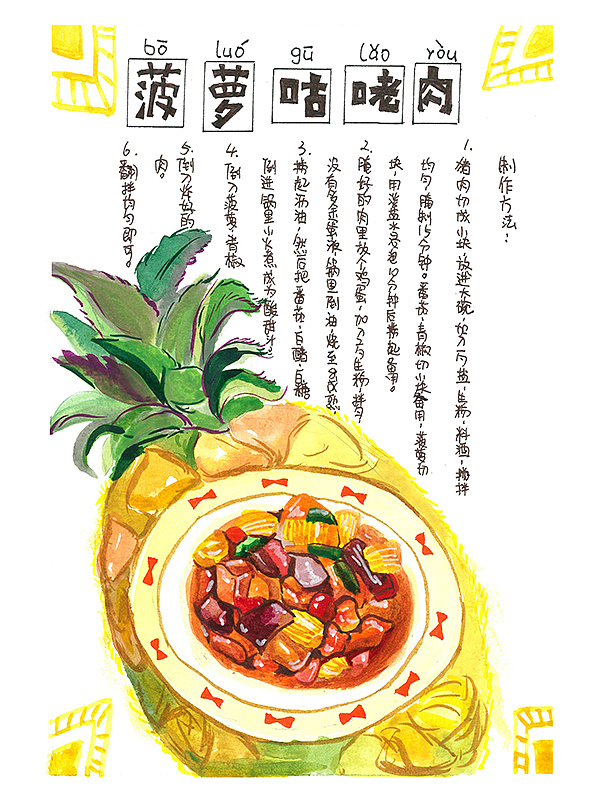 bō luó gū lǎo ròu
菠萝咕咾肉
制作方法：
1. 猪肉切成小块，放进大碗，加入少盐，生粉，料酒，搅拌
均匀，腌制15分钟。番茄，青椒切小块备用，菠萝切
块，用淡盐水浸泡10分钟后捞起备用。
2. 腌好的肉里放个鸡蛋，加入少生粉拌匀
没有多余蛋液，锅里倒油，烧至8成熟，
3. 捞起沥油，然后把番茄，白醋，白糖
倒进锅里小火煮成为酸甜汁。
4. 倒入菠萝，青椒
5. 倒入炸好的
肉。
6. 翻拌均匀即可。